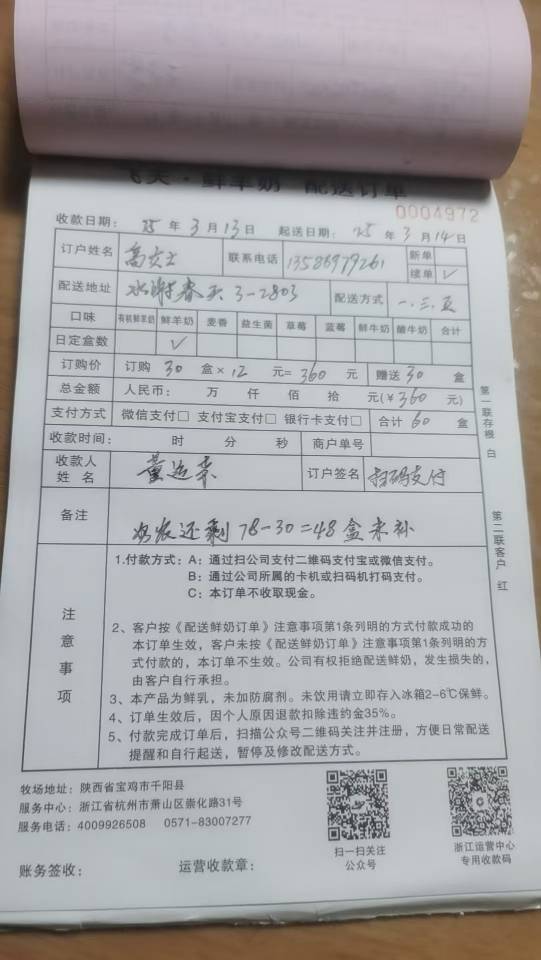 飞天·鲜羊奶 配送订单
0004972
收款日期： 25 年 3 月 13 日 起送日期： 25 年 3 月 14 日
订户姓名 高女士 联系电话 13586979261 新单
续单 ✓
配送地址 水榭春天 3-2803 配送方式 一.三.五
口味 有机鲜羊奶 鲜羊奶 麦香 益生菌 草莓 蓝莓 鲜牛奶 酸牛奶 合计
日定盒数 ✓
订购价 订购 30 盒 × 12 元= 360 元 赠送 30 盒
总金额 人民币： 万 仟 佰 拾 元(￥360 元)
支付方式 微信支付□ 支付宝支付□ 银行卡支付□ 合计 60 盒
收款时间： 时 分 秒 商户单号
收款人
姓 名 董运来 订户签名 扫码支付
备注 还剩 78-30=48盒未补
注意事项
1.付款方式：A：通过扫公司支付二维码支付宝或微信支付。
B：通过公司所属的卡机或扫码机打码支付。
C：本订单不收取现金。
2、客户按《配送鲜奶订单》注意事项第1条列明的方式付款成功的
本订单生效，客户未按《配送鲜奶订单》注意事项第1条列明的方
式付款的，本订单不生效。公司有权拒绝配送鲜奶，发生损失的，
由客户自行承担。
3、本产品为鲜乳，未加防腐剂。未饮用请立即存入冰箱2-6℃保鲜。
4、订单生效后，因个人原因退款扣除违约金35%。
5、付款完成订单后，扫描公众号二维码关注并注册，方便日常配送
提醒和自行起送，暂停及修改配送方式。
第一联存根 白
第二联客户 红
牧场地址：陕西省宝鸡市千阳县
服务中心：浙江省杭州市萧山区崇化路31号
服务电话：4009926508 0571-83007277
扫一扫关注
公众号
浙江运营中心
专用收款码
账务签收： 运营收款章：